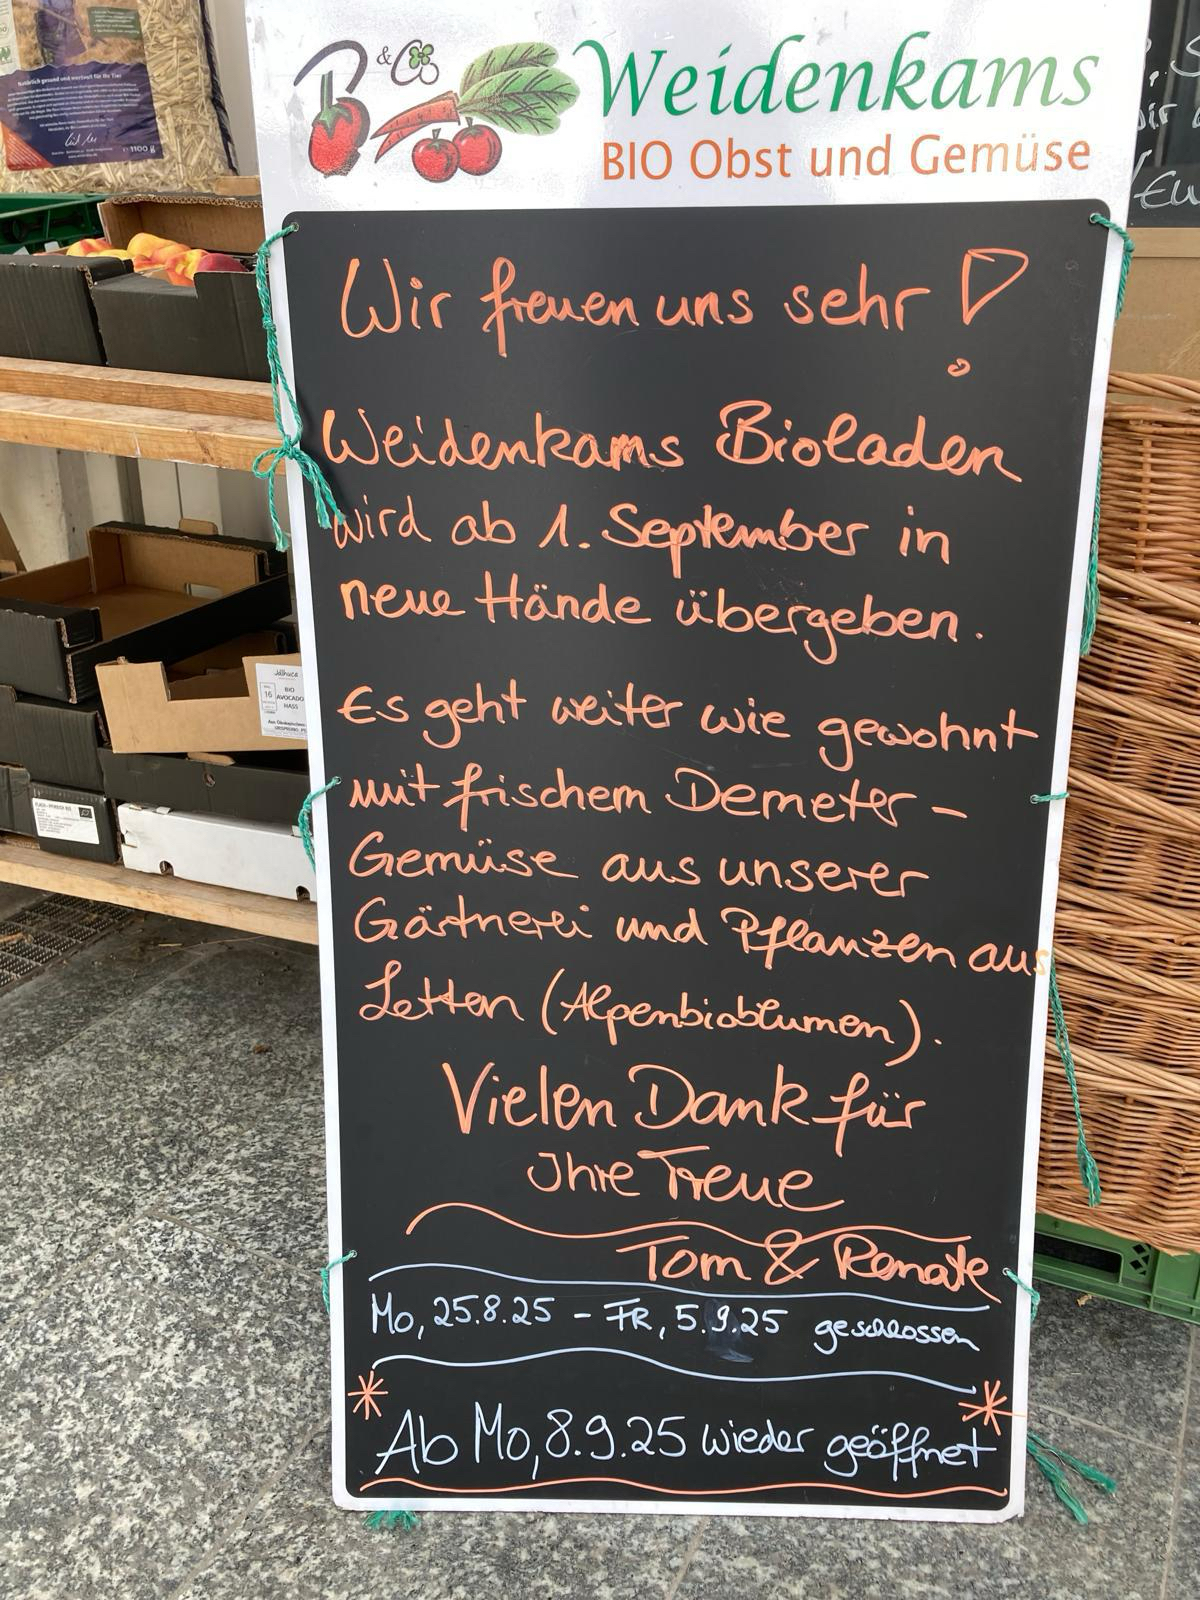 Natürlich gesund und wertvoll für Ihr Tier
1100 g
B & Co
Weidenkams
BIO Obst und Gemüse
Wir freuen uns sehr!
Weidenkams Bioladen
wird ab 1. September in
neue Hände übergeben.
Es geht weiter wie gewohnt
mit frischem Demeter-
Gemüse aus unserer
Gärtnerei und Pflanzen aus
Letten (Alpenbioblumen).
Vielen Dank für
Ihre Treue
Tom & Renate
Mo, 25.8.25 - FR, 5.9.25 geschlossen
* Ab Mo, 8.9.25 wieder geöffnet *
16
BIO
AVOCADO
HASS